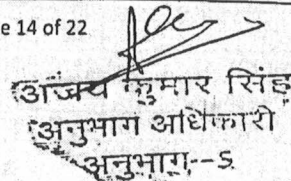 e 14 of 22
अजय कुमार सिंह
अनुभाग अधिकारी
अनुभाग--5